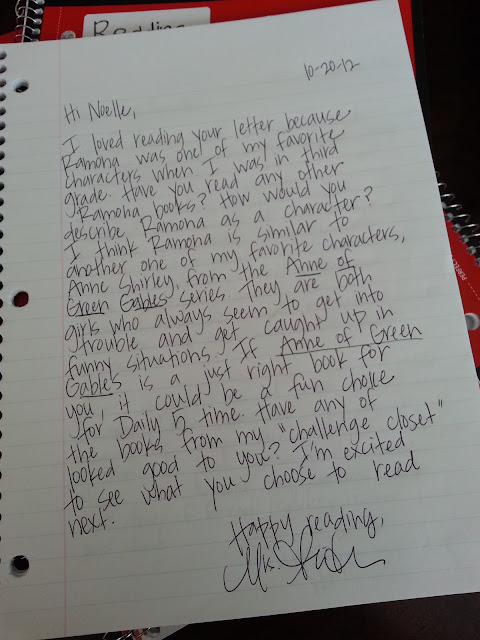 Reading
10-20-12
Hi Noelle,
I loved reading your letter because
Ramona was one of my favorite
characters when I was in third
grade. Have you read any other
Ramona books? How would you
describe Ramona as a character?
I think Ramona is similar to
another one of my favorite characters,
Anne Shirley, from the Anne of
Green Gables series. They are both
girls who always seem to get into
trouble and get caught up in
funny situations. If Anne of Green
Gables is a just right book for
you, it could be a fun choice
for Daily 5 time. Have any of
the books from my "challenge closet"
looked good to you? I'm excited
to see what you choose to read
next.
Happy reading,